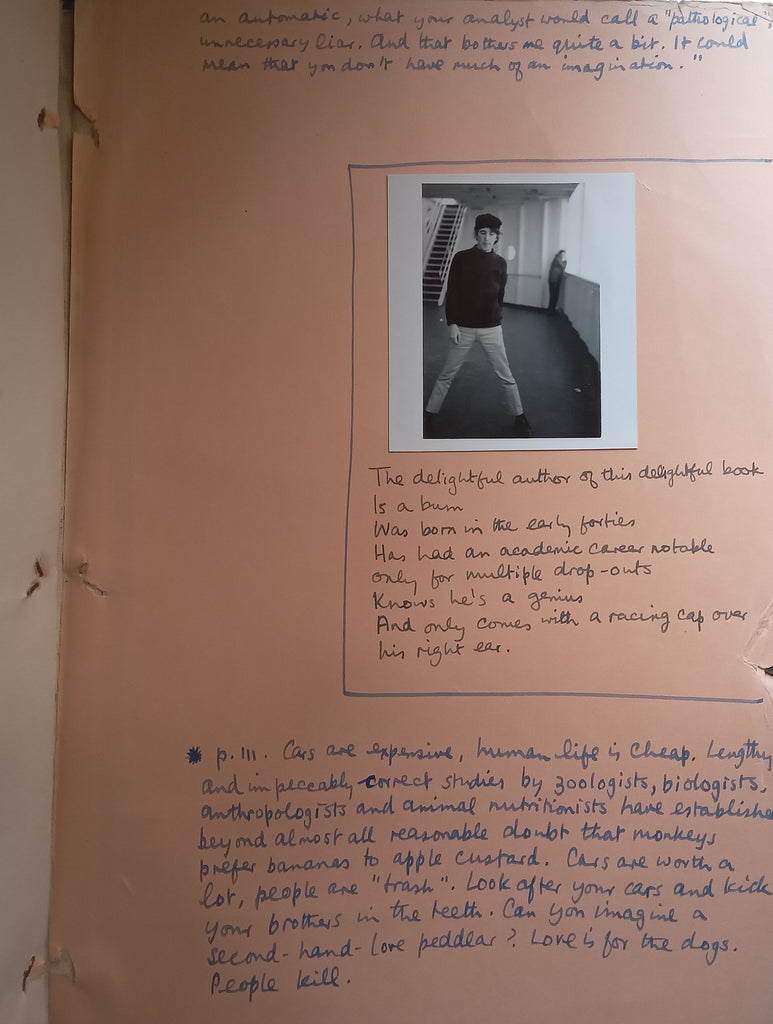 an automatic, what your analyst would call a "pathological",
unnecessary liar. And that bothers me quite a bit. It could
mean that you don't have much of an imagination."
The delightful author of this delightful book
Is a bum
Was born in the early forties
Has had an academic career notable
only for multiple drop-outs
Knows he's a genius
And only comes with a racing cap over
his right ear.
* p. 111. Cars are expensive, human life is cheap. Lengthy
and impeccably correct studies by zoologists, biologists,
anthropologists and animal nutritionists have establishe
beyond almost all reasonable doubt that monkeys
prefer bananas to apple custard. Cars are worth a
lot, people are "trash". Look after your cars and kick
your brothers in the teeth. Can you imagine a
second-hand-love peddlar? Love is for the dogs.
People kill.